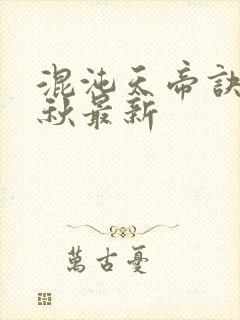 混沌天帝訣
秋最新
萬古憂